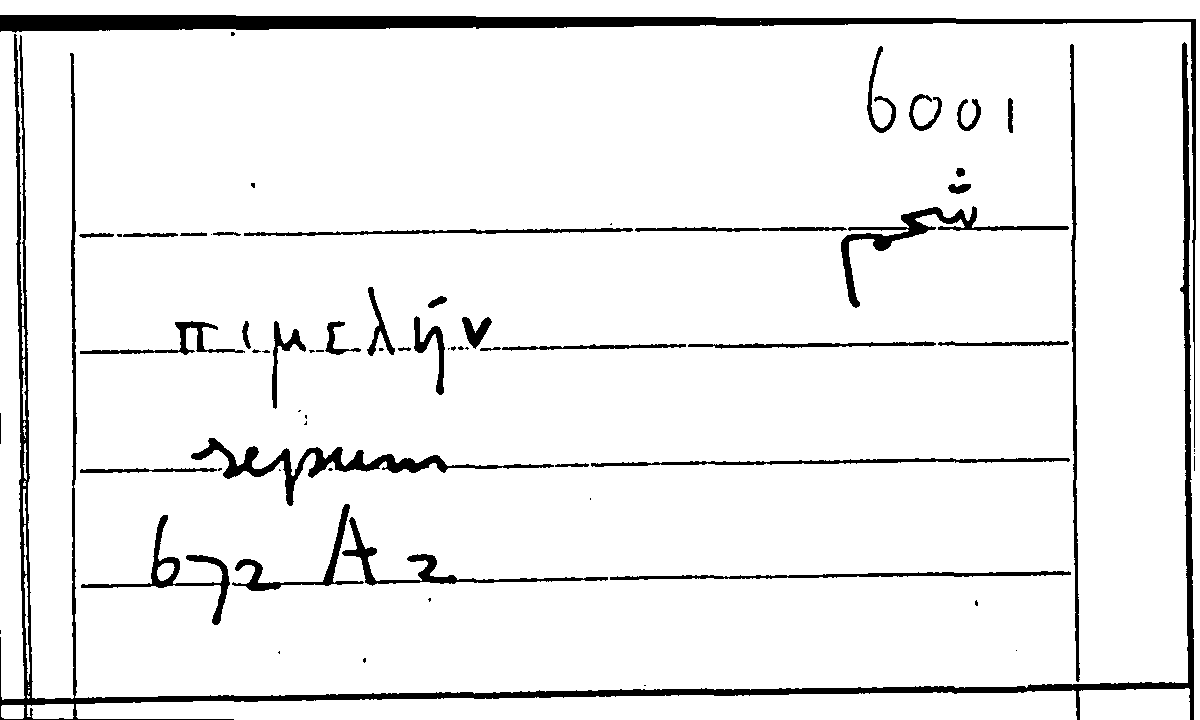 6001
شحم
πιμελήν
sepum
672 A 2